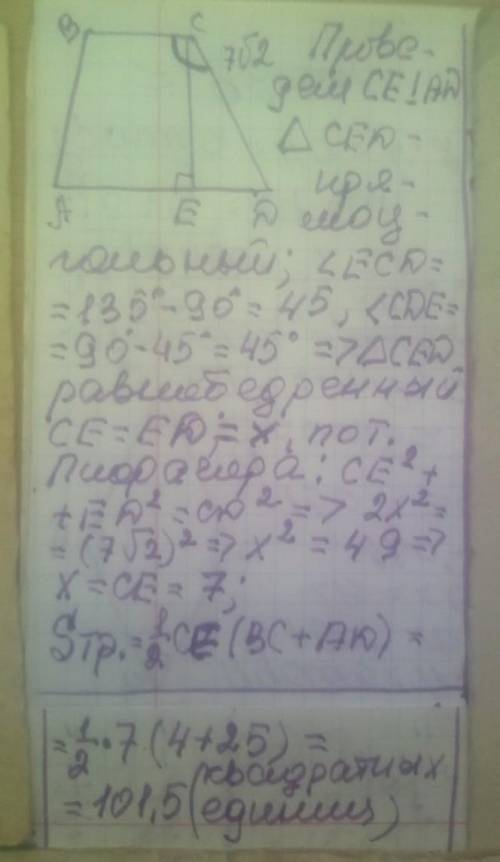 B C 7√2 Прове-
дем CE⊥AD
△CED -
пря-
A E D моуг-
гольный; ∠ECD=
=135°-90°=45, ∠CDE=
=90°-45°=45° => △CED
равнобедренный
CE=ED=x, по т.
Пифагора: CE²+
+ED²=CD² => 2x²=
=(7√2)² => x²=49 =>
x=CE=7;
Sтр.=1/2 CE(BC+AD) =
=1/2•7(4+25) =
=101,5 (квадратных
единиц)